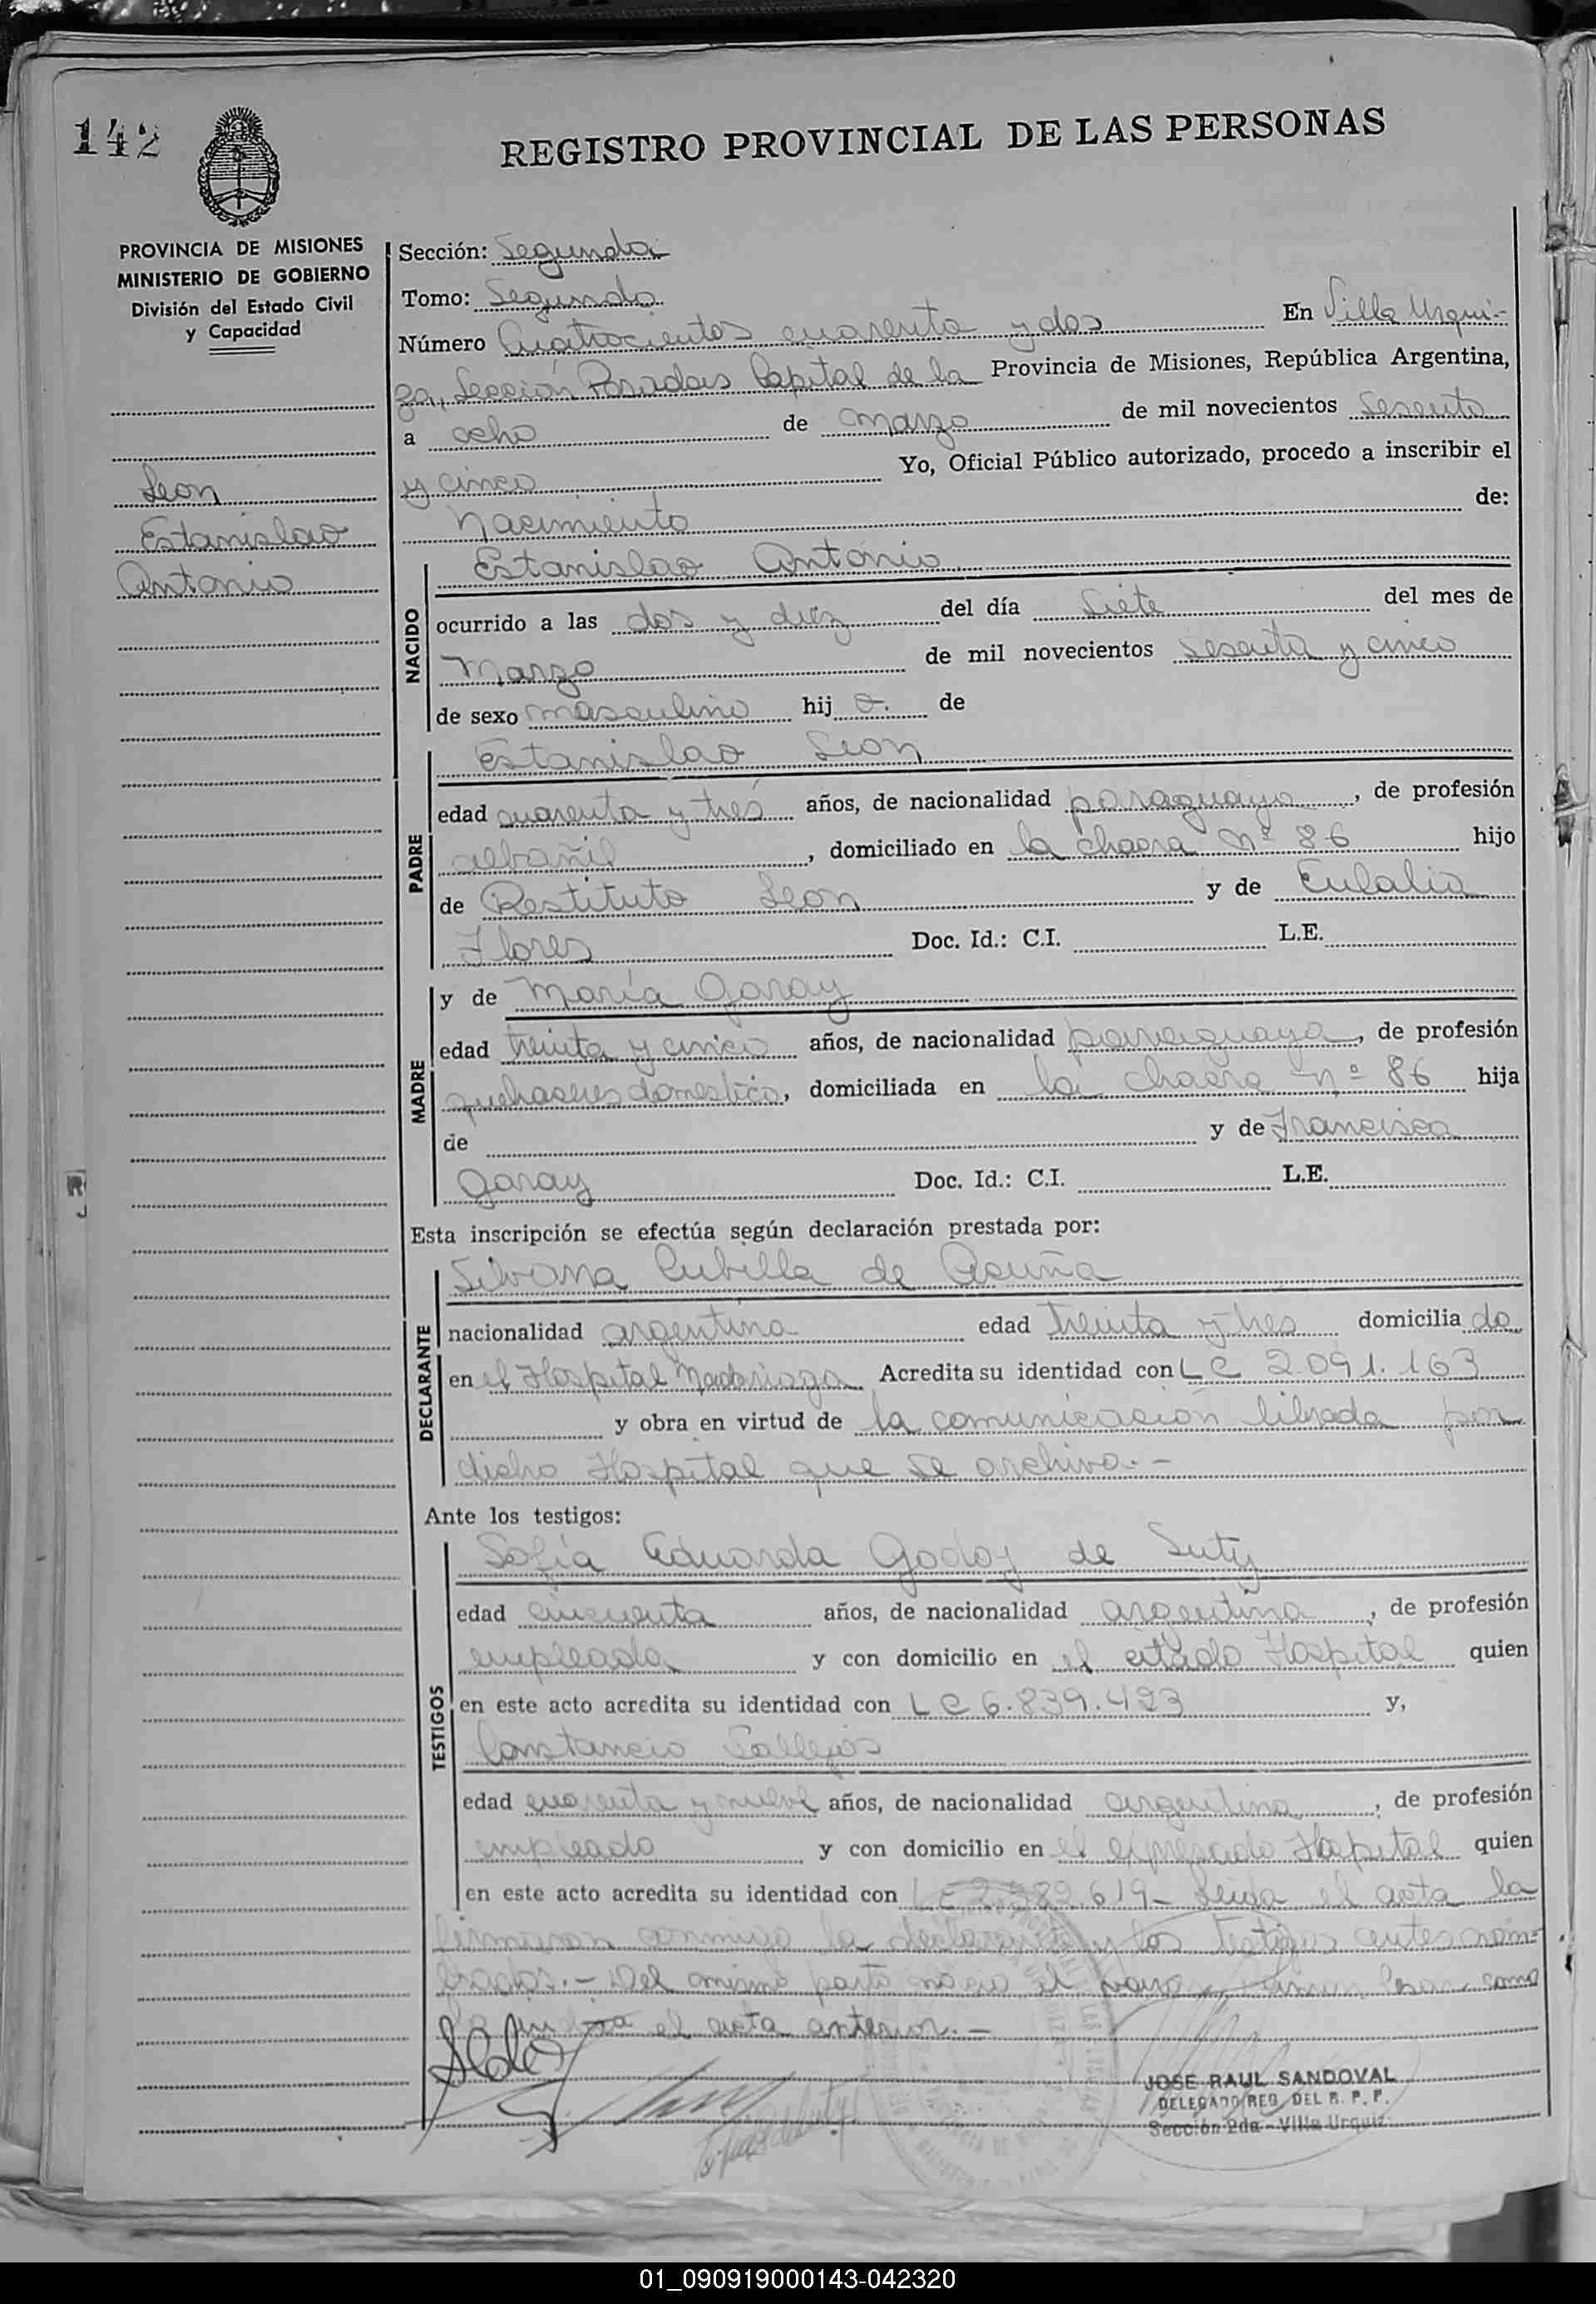 142
REGISTRO PROVINCIAL DE LAS PERSONAS
PROVINCIA DE MISIONES
MINISTERIO DE GOBIERNO
División del Estado Civil
y Capacidad
Leon
Estanislao
Antonio
Sección: Segunda
Tomo: Segundo
Número Cuatrocientos cuarenta y dos En Villa Urqui-
za, Sección Posadas Capital de la Provincia de Misiones, República Argentina,
a ocho de marzo de mil novecientos sesenta
y cinco Yo, Oficial Público autorizado, procedo a inscribir el
Nacimiento de:
NACIDO
Estanislao Antonio
ocurrido a las dos y diez del día siete del mes de
Marzo de mil novecientos sesenta y cinco
de sexo masculino hij o. de
PADRE
Estanislao Leon
edad cuarenta y tres años, de nacionalidad paraguaya, de profesión
albañil, domiciliado en la chacra nº 86 hijo
de Restituto Leon y de Eulalia
Flores Doc. Id.: C.I. L.E.
MADRE
y de María Garay
edad treinta y cinco años, de nacionalidad paraguaya, de profesión
quehaseres domestico, domiciliada en la chacra nº 86 hija
de y de Francisca
Garay Doc. Id.: C.I. L.E.
Esta inscripción se efectúa según declaración prestada por:
DECLARANTE
Silvana Cubilla de Acuña
nacionalidad argentina edad treinta y tres domicilia da
en el Hospital Madariaga Acredita su identidad con L C 2.091.163
y obra en virtud de la comunicación librada por
dicho Hospital que se archiva.-
Ante los testigos:
TESTIGOS
Sofía Eduarda Godoy de Suty
edad cincuenta años, de nacionalidad argentina, de profesión
empleada y con domicilio en el citado Hospital quien
en este acto acredita su identidad con L C 6.839.423 y,
Constancio Vallejos
edad cuarenta y nueve años, de nacionalidad argentina, de profesión
empleado y con domicilio en el expresado Hospital quien
en este acto acredita su identidad con 619- Leída el acta la
firmaron conmigo la declarante y los testigos antes nom-
brados.- Del mismo parto nació el varon como
el acta anterior.-
JOSE RAUL SANDOVAL
DELEGADO REG. DEL R. P. P.
Sección 2da - Villa Urquiz
01_090919000143-042320